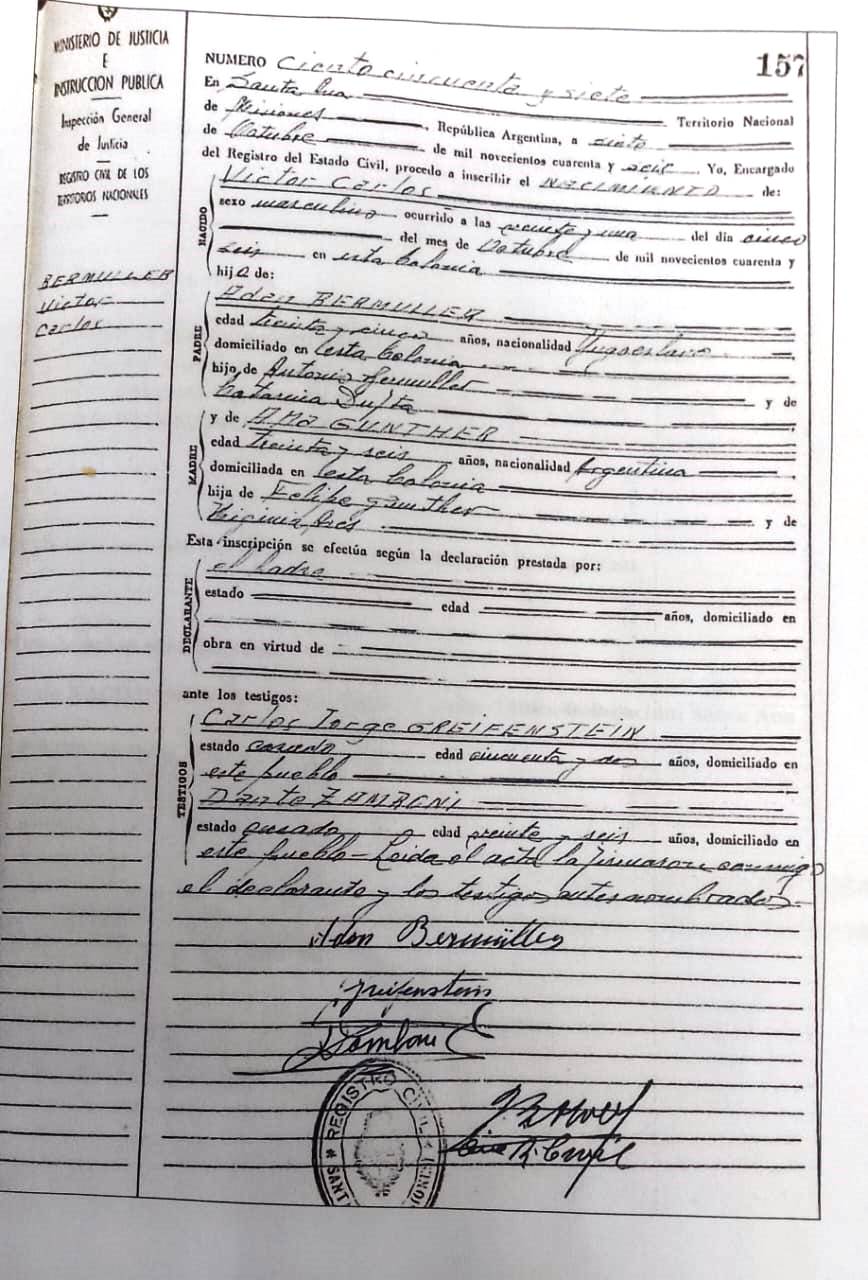 MINISTERIO DE JUSTICIA
E
INSTRUCCION PUBLICA
Inspección General
de Justicia
REGISTRO CIVIL DE LOS
TERRITORIOS NACIONALES
BERMULLER
Victor
Carlos
157
NUMERO Ciento cincuenta y siete
En Santa Ana Territorio Nacional
de Misiones, República Argentina, a siete
de Octubre de mil novecientos cuarenta y seis Yo, Encargado
del Registro del Estado Civil, procedo a inscribir el NACIMIENTO de:
Victor Carlos
NACIDO
sexo masculino ocurrido a las veinte y una del día cinco
del mes de Octubre de mil novecientos cuarenta y
seis en esta Colonia
hijo de:
PADRE
Adan BERMULLER
edad treinta y cinco años, nacionalidad Yugoeslavo
domiciliado en esta Colonia
hijo de Antonio Bermuller y de
Catarina
MADRE
y de Ana GUNTHER
edad treinta y seis años, nacionalidad Argentina
domiciliada en esta Colonia
hija de Felipe Gunther y de
Virginia
Esta inscripción se efectúa según la declaración prestada por:
DECLARANTE
el Padre
estado edad años, domiciliado en
obra en virtud de
ante los testigos:
TESTIGOS
Carlos Jorge GREIFENSTEIN
estado casado edad cincuenta y dos años, domiciliado en
este pueblo
Dante ZAMBONI
estado casado edad veinte y seis años, domiciliado en
este pueblo - Leida el acta la firmaron conmigo
el declarante y los testigos antes nombrados.-
Adan Bermüller
Greifenstein
DZamboni
REGISTRO CIVIL